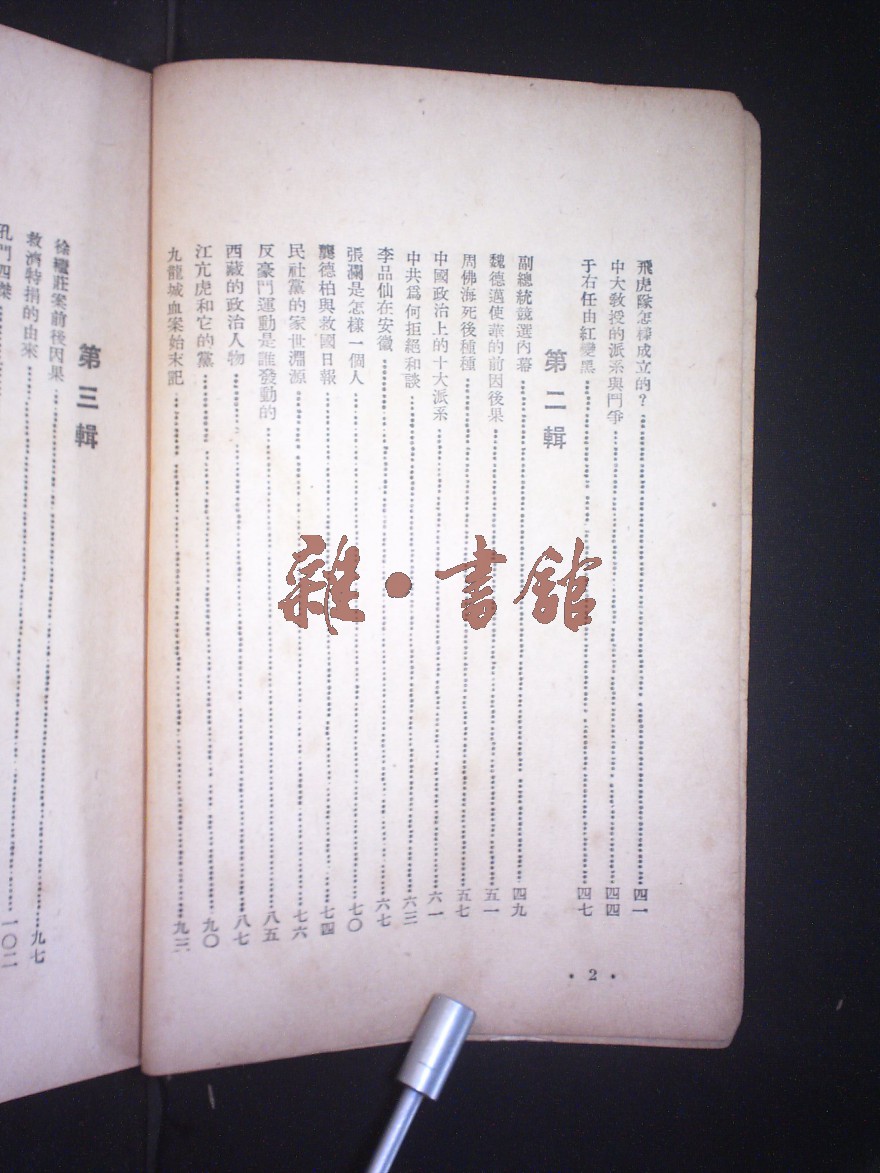 飛虎隊怎樣成立的？ 四一
中大敎授的派系與鬥爭 四四
于右任由紅變黑 四七
第二輯
副總統競選內幕 四九
魏德邁使華的前因後果 五一
周佛海死後種種 五七
中國政治上的十大派系 六一
中共爲何拒絕和談 六三
李品仙在安徽 六七
張瀾是怎樣一個人 七〇
龔德柏與救國日報 七四
民社黨的家世淵源 七六
反豪門運動是誰發動的 八五
西藏的政治人物 八七
江亢虎和它的黨 九〇
九龍城血案始末記 九三
· 2 ·
第三輯
徐繼莊案前後因果 九七
救濟特捐的由來
孔門四傑 一〇二
雜·書館